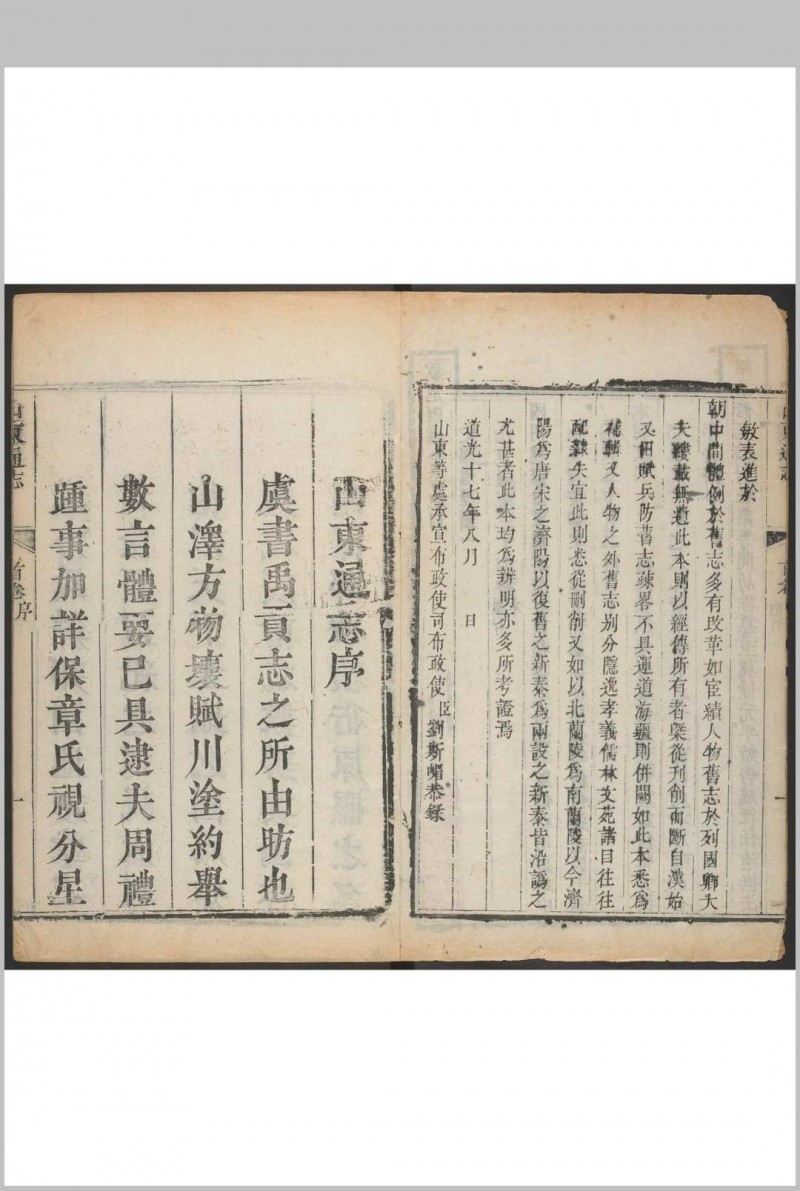 敏表進於
朝中間體例於舊志多有改革如宦績人物舊志於列國卿大
夫𦆵載無遺此本則以經傳所有者槩從刊削而斷自漢始
又田賦兵防舊志疎畧不具運道海疆則併闕如此本悉爲
補輯又人物之外舊志别分隱逸孝義儒林文苑諸目往往
配隸失宜此則悉從刪削又如以北蘭陵爲南蘭陵以今濟
陽爲唐宋之濟陽以復舊之新泰爲兩設之新泰皆沿譌之
尤甚者此本均爲辨明亦多所考證焉
道光十七年八月　日
山東等處承宣布政使司布政使臣劉斯嵋恭錄
山東通志
首卷
一
山東通志序
虞書禹貢志之所由昉也
山澤方物壤賦川塗約舉
數言體要已具逮夫周禮
踵事加詳保章氏視分星
山東通志
首卷序
一